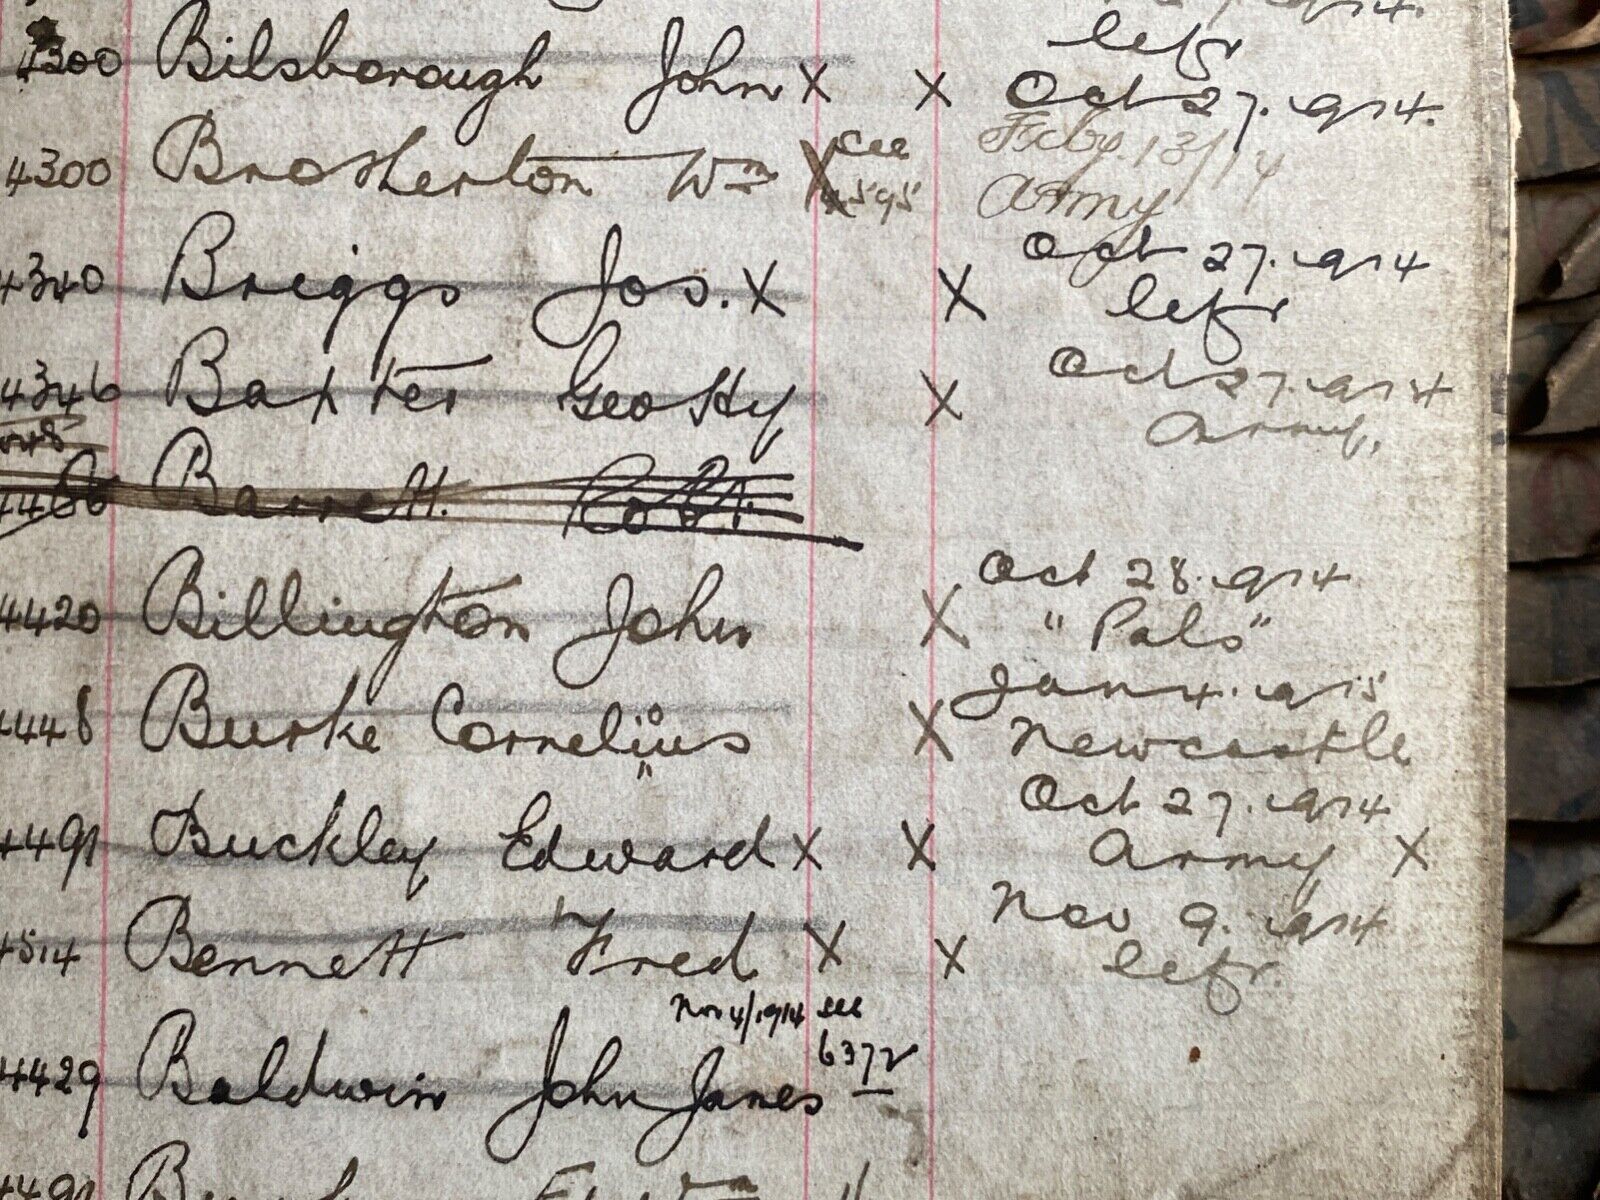 left
4300 Bilsborough John X X Oct 27. 1914.
4300 Brotherton Wm X see 4595 Feby. 13/14
Army
4340 Briggs Jos. X X Oct 27. 1914
left
4346 Baxter Geo Hy X Oct 27. 1914
Army,
Barrett. Robt.
4420 Billington John X Oct 28. 1914
"Pals"
4448 Burke Cornelius X Jan 4. 1915
Newcastle
4491 Buckley Edward X X Oct 27. 1914
Army X
4514 Bennett Fred X X Nov 9. 1914
left.
Nov 4/1914 see
4429 Baldwin John James 6372